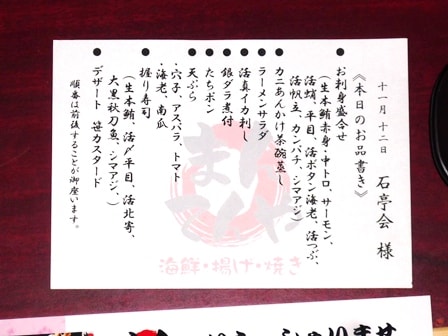 十一月 十二日　石亭会 様
《本日のお品書き》
● お刺身盛合せ
（生本鮪赤身・中トロ、サーモン、
活蛸、平目、活ボタン海老、活つぶ、
活帆立、カンパチ、シマアジ）
● カニあんかけ茶碗蒸し
● ラーメンサラダ
● 活真イカ刺し
● 銀ダラ煮付
● たちポン
● 天ぷら
・穴子、アスパラ、トマト
・海老、南瓜
● 握り寿司
（生本鮪、活〆平目、活北寄、
大黒秋刀魚、シマアジ、）
● デザート 笹カスタード
順番は前後することが御座います。
海鮮・揚げ・焼き